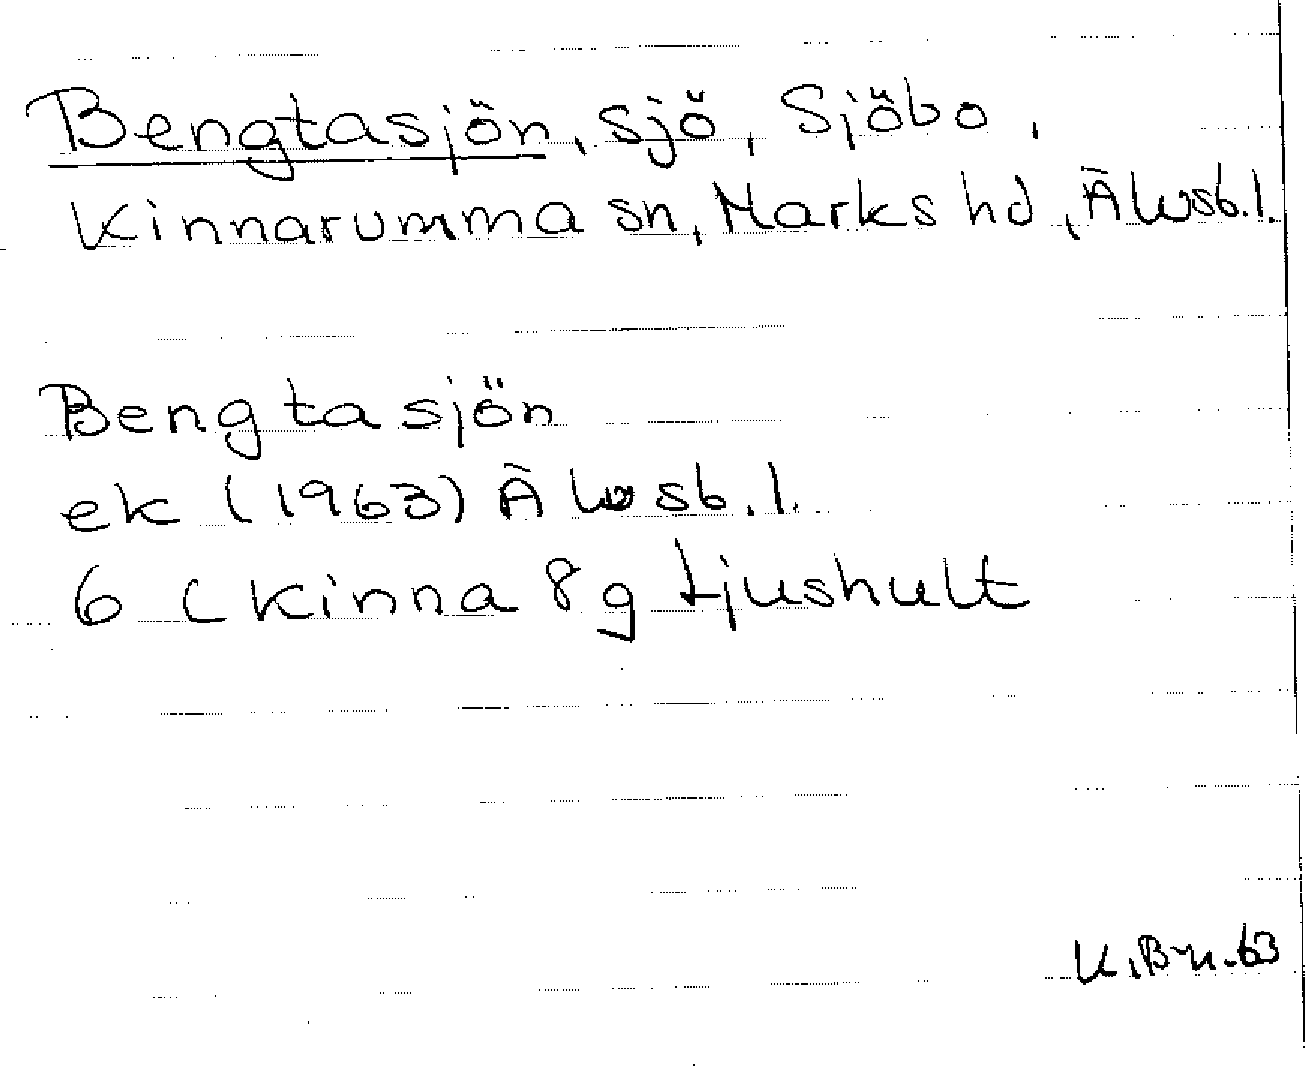 Bengtasjön, sjö, Sjöbo,
Kinnarumma sn, Marks hd, Älvsb.l.
Bengtasjön
ek (1963) Älvsb.l.
6 C Kinna 8g Ljushult
K.Bn.63